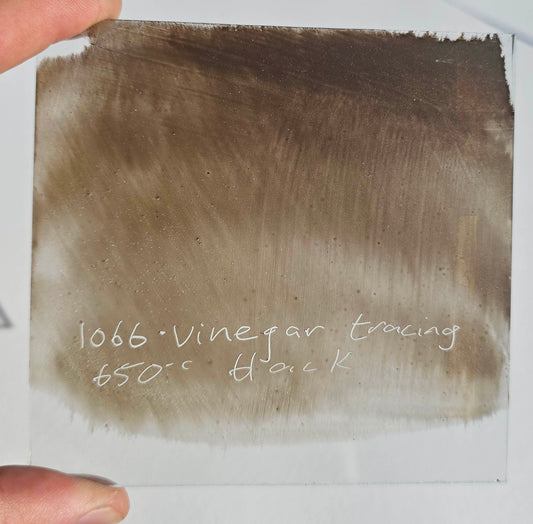 1066·vinegar tracing
650°c black